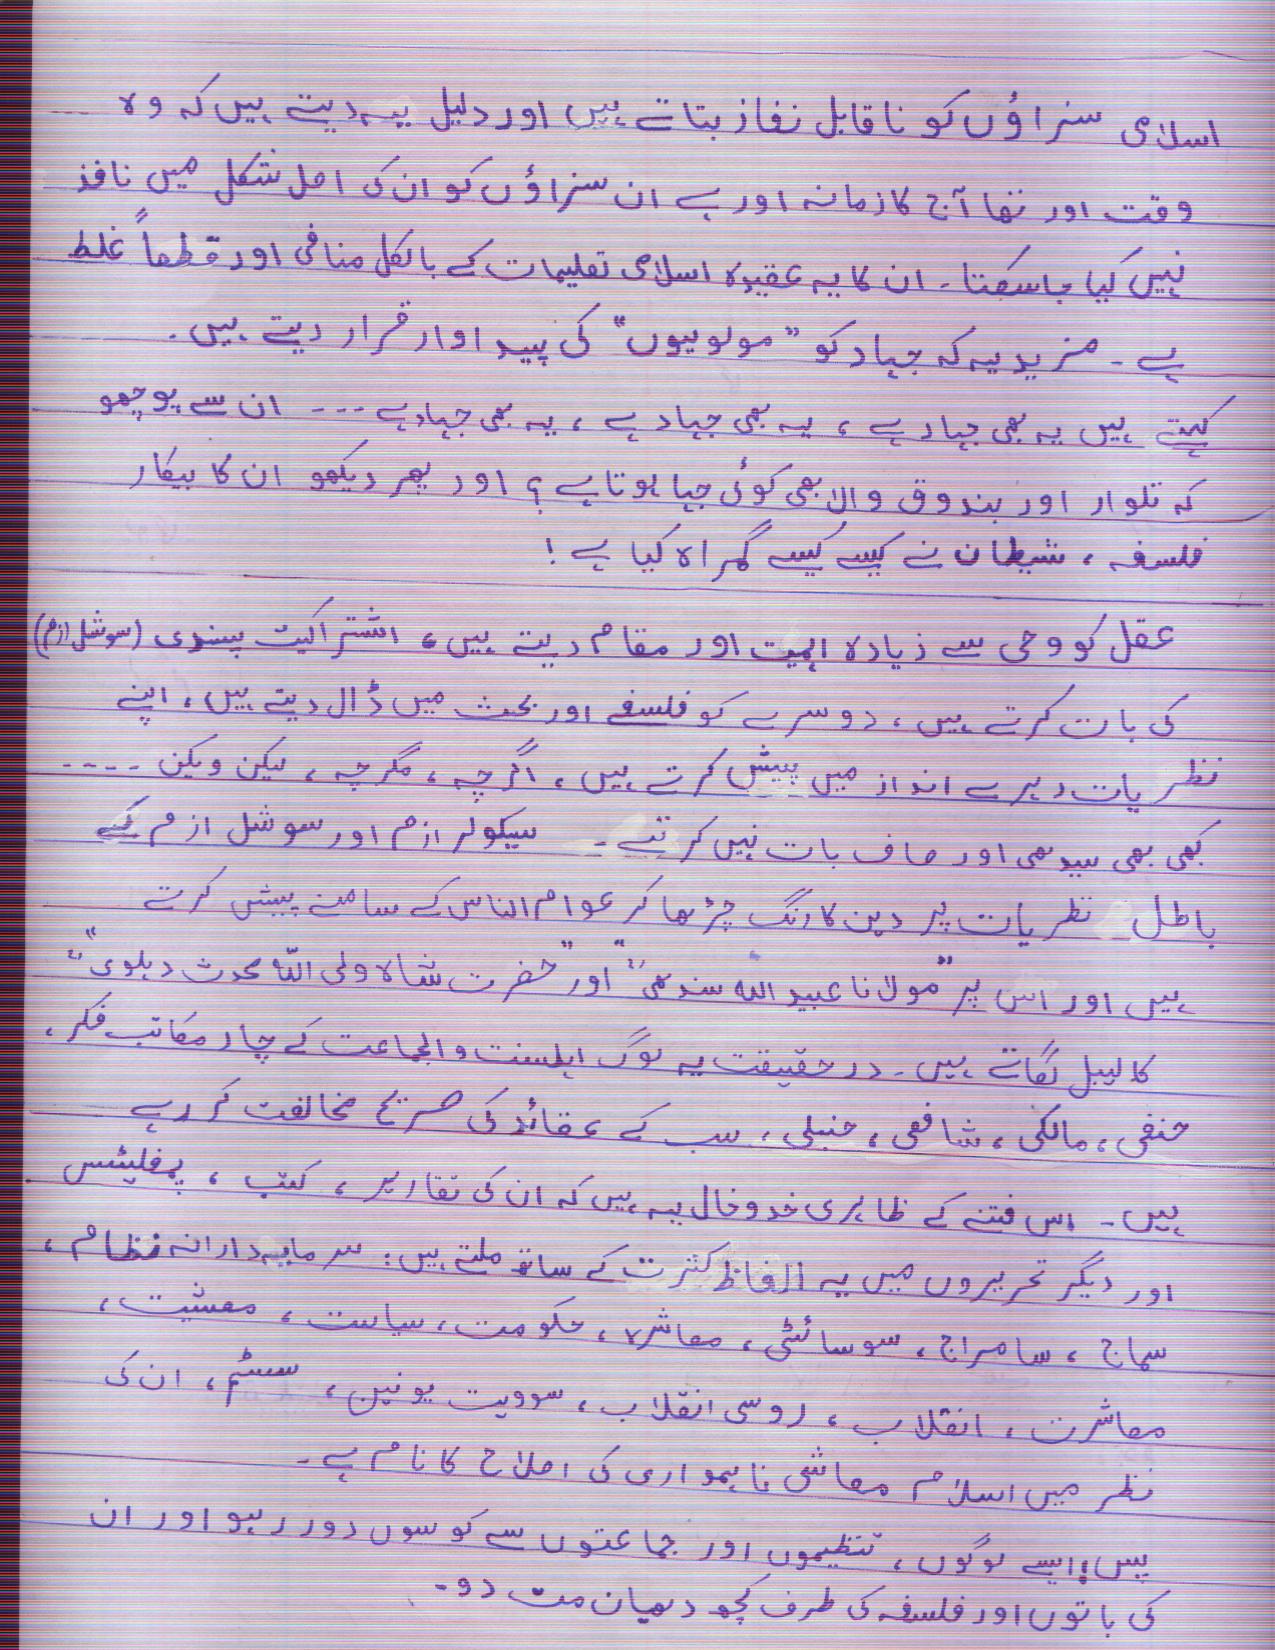 اسلامی سزاؤں کو ناقابل نفاذ بتاتے ہیں اور دلیل یہ دیتے ہیں کہ وہ
وقت اور تھا آج کا زمانہ اور ہے ان سزاؤں کو ان کی اصل شکل میں نافذ
نہیں کیا جاسکتا۔ ان کا یہ عقیدہ اسلامی تعلیمات کے بالکل منافی اور قطعاً غلط
ہے۔ مزید یہ کہ جہاد کو "مولویوں" کی پیداوار قرار دیتے ہیں۔
کہتے ہیں یہ بھی جہاد ہے، یہ بھی جہاد ہے، یہ بھی جہاد ہے --- ان سے پوچھو
کہ تلوار اور بندوق والا بھی کوئی جہا ہوتا ہے؟ اور پھر دیکھو ان کا بیکار
فلسفہ، شیطان نے کیسے کیسے گمراہ کیا ہے!
عقل کو وحی سے زیادہ اہمیت اور مقام دیتے ہیں، اشتراکیت پسندی (سوشل ازم)
کی بات کرتے ہیں، دوسرے کو فلسفے اور بحث میں ڈال دیتے ہیں، اپنے
نظریات دہرے انداز میں پیش کرتے ہیں، اگرچہ، مگرچہ، لیکن ویکن ----
کبھی بھی سیدھی اور صاف بات نہیں کرتے۔ سیکولر ازم اور سوشل ازم کے
باطل نظریات پر دین کا رنگ چڑھا کر عوام الناس کے سامنے پیش کرتے
ہیں اور اس پر "مولانا عبید اللہ سندھی" اور "حضرت شاہ ولی اللہ محدث دہلوی"
کا لیبل لگاتے ہیں۔ درحقیقت یہ لوگ اہلسنت والجماعت کے چار مکاتب فکر،
حنفی، مالکی، شافعی، حنبلی، سب کے عقائد کی صریح مخالفت کر رہے
ہیں۔ اس فتنے کے ظاہری خدوخال یہ ہیں کہ ان کی تقاریر، کتب، پمفلیٹس
اور دیگر تحریروں میں یہ الفاظ کثرت کے ساتھ ملتے ہیں: سرمایہ دارانہ نظام،
سماج، سامراج، سوسائٹی، معاشرہ، حکومت، سیاست، معیشت،
معاشرت، انقلاب، روسی انقلاب، سوویت یونین، سسٹم، ان کی
نظر میں اسلام معاشی ناہمواری کی اصلاح کا نام ہے۔
پس! ایسے لوگوں، تنظیموں اور جماعتوں سے کوسوں دور رہو اور ان
کی باتوں اور فلسفہ کی طرف کچھ دھیان مت دو۔